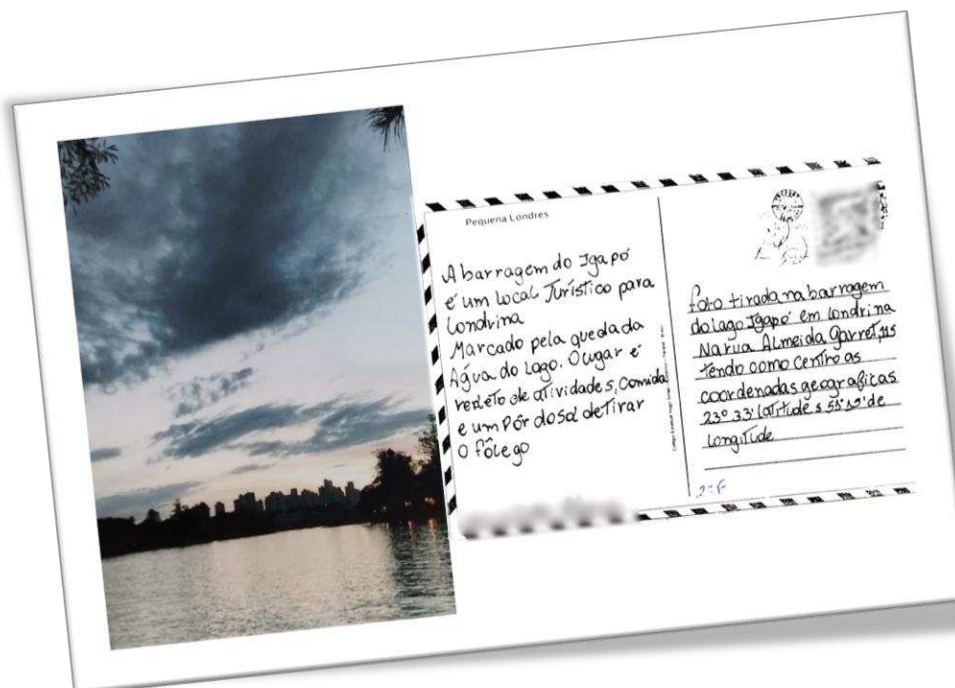 Pequena Londres
A barragem do Igapó
é um local Turístico para
Londrina
Marcado pela queda da
Água do Lago. O lugar é
repleto de atividades, Comida
e um Pôr do sol de Tirar
O fôlego
foto tirada na barragem
do lago Igapó em londrina
Na rua Almeida Garret, 115
tendo como centro as
coordenadas geograficas
23° 33' latitude s 51° 15' de
Longitude
2ºF